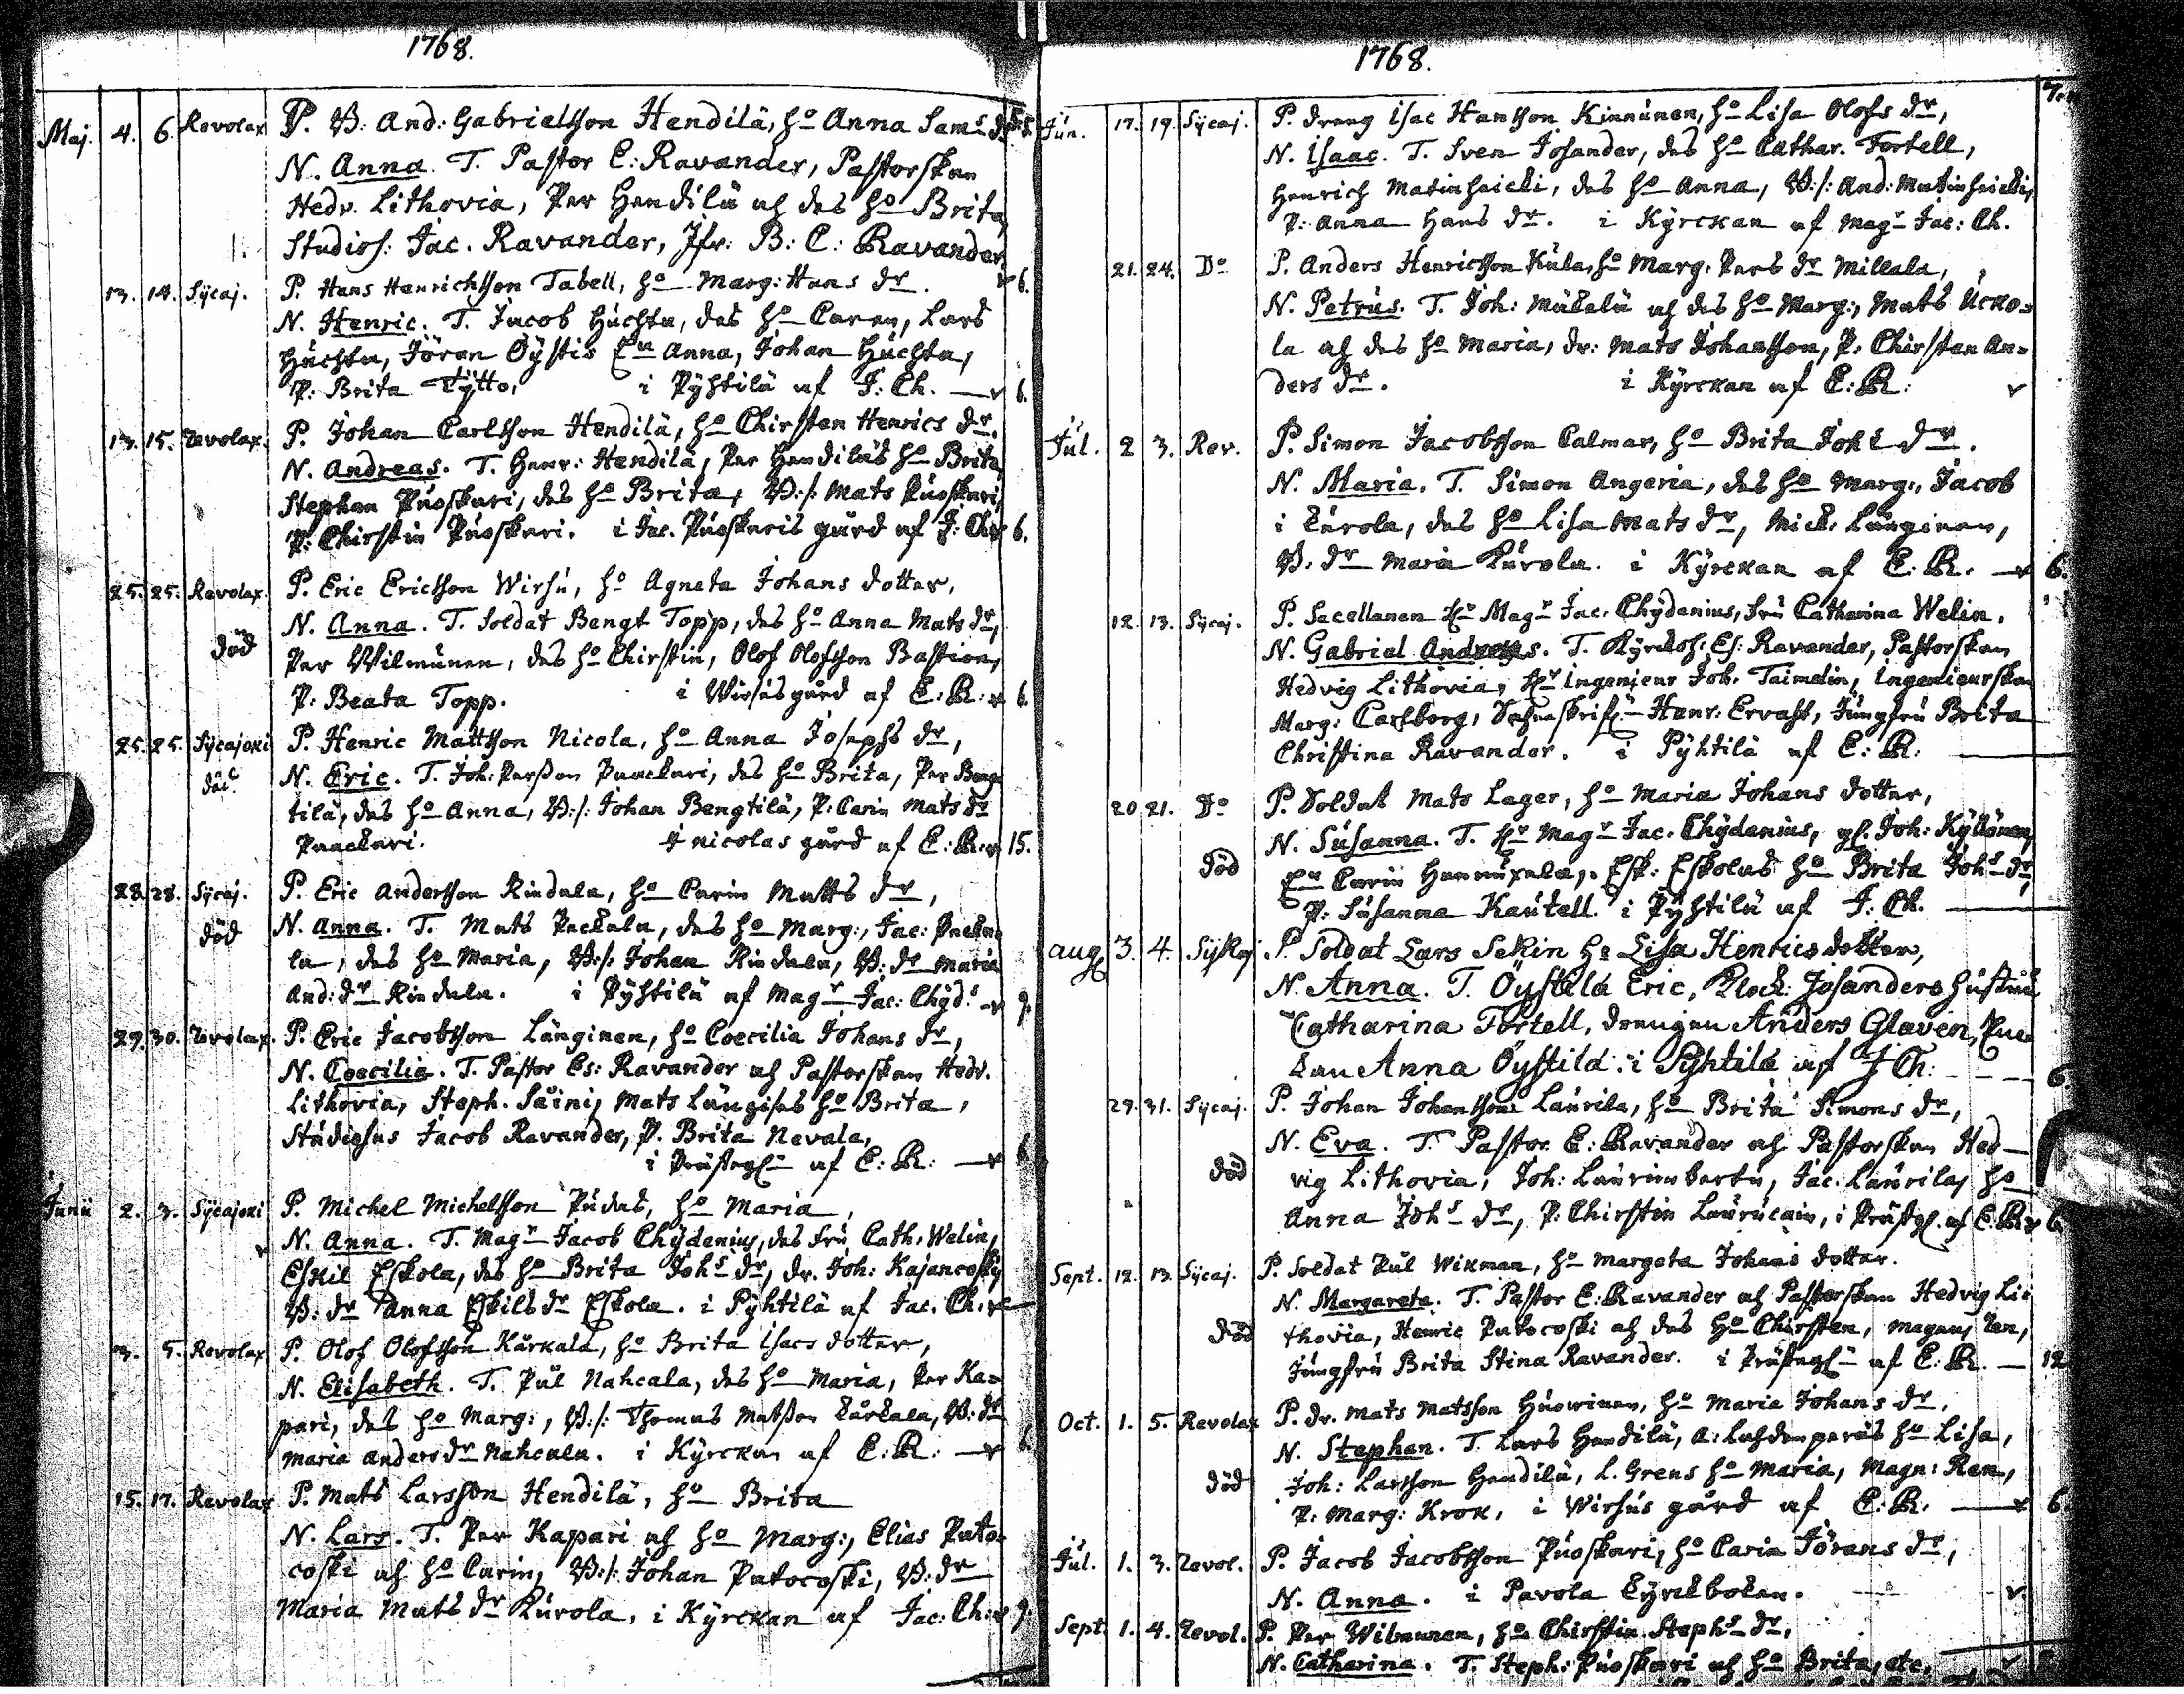 1768.
Maj. 4. 6. Revolax P. B: And: Gabrielsson Hendilä, ho Anna Sams dr
N. Anna. T. Pastor E: Ravander, Pastorskan
Hedv. Lithovia, Per Hendilä och des ho Brita
Studios: Jac. Ravander, Jfr: B: C: Ravander
13. 14. Sijcaj. P. Hans Henrichsson Tabell, ho Marg: Hans dr. 6.
N. Henric. T. Jacob Huchta, des ho Caren, Lars
Huchta, Jöran Öystis En Anna, Johan Huchta,
P: Brita Tytto, i Pyhtilä af J: Ch. 6.
13. 15. Revolax. P. Johan Carlsson Hendilä, ho Chirsten Henrics dr.
N. Andreas. T. Henr: Hendilä, Per Hendiläs ho Brita
Stephan Puoskari, des ho Brita, B:/: Mats Puoskari,
P: Chirstin Puoskari. i Jac. Puoskaris gård af J: Ch 6.
25. 25. Revolax. P. Eric Ericsson Wirsu, ho Agneta Johans dotter,
N. Anna. T. Soldat Bengt Topp, des ho Anna Mats dr,
död Per Wilmunen, des ho Chirstin, Olof Olofsson Bastion,
P: Beata Topp. i Wirsus gård af E: R: 6.
25. 25. Sijcajoki P. Henric Mattsson Nicola, ho Anna Josephs dr,
död N. Eric. T. Joh: Persson Paackari, des ho Brita, Per Beng-
tilä, des ho Anna, B:/: Johan Bengtilä, P: Carin Mats dr
Paackari. i nicolas gård af E: R. 15.
28. 28. Sijcaj. P. Eric Andersson Rindala, ho Carin Matts dr,
död N. Anna. T. Mats Packala, des ho Marg:, Jac: Packa-
la, des ho Maria, B:/: Johan Rindala, B: dr Maria
And: dr Rindala. i Pyhtilä af Magr Jac: Chyds 9.
29. 30. Revolax. P. Eric Jacobsson Länginen, ho Coecilia Johans dr,
N. Coecilia. T. Pastor Es: Ravander och Pastorskan Hedv.
Lithovia, Steph. Säini, Mats Längises ho Brita,
Studiosus Jacob Ravander, P. Brita Nevala,
i Prästegn af E: R: 6
Junii 2. 3. Sijcajoki P. Michel Michelsson Pudas, ho Maria,
N. Anna. T. Magr Jacob Chydenius, des fru Cath. Welin,
Eskil Eskola, des ho Brita Johs dr, dr. Joh: Kajancoski
B: dr Anna Eskils dr Eskola. i Pyhtilä af Jac. Ch:
3. 5. Revolax P. Olof Olofsson Kärkälä, ho Brita Isacs dotter,
N. Elisabeth. T. Pål Nahcala, des ho Maria, Per Ka-
pari, des ho Marg:, B:/: Thomas Matsson Kärkälä, B: dr
Maria Anders dr Nahcala. i Kyrckan af E: R: 6.
15. 17. Revolax P. Mats Larsson Hendilä, ho Brita
N. Lars. T. Per Kapari och ho Marg:, Elias Pato-
coski och ho Carin, B:/: Johan Patocoski, B: dr
Maria Mats dr Kurola, i Kyrckan af Jac: Ch: 9.
1768.
Jun. 17. 19. Sycaj. P. dreng Isac Hansson Kinnunen, ho Lisa Olofs dr,
N. Isaac. T. Sven Josander, des ho Cathar. Fortell,
Henrich Matinheicki, des ho Anna, B:/: And: Matinheicki,
P: Anna Hans dr. i Kyrckan af Magr Jac: Ch.
21. 24. Do P. Anders Henricsson Kula, ho Marg: Pers dr Millala,
N. Petrus. T. Joh: Mäkelä och des ho Marg:, Mats Ucko-
la och des ho Maria, dr: Mats Johansson, P: Chirstan An-
ders dr. i Kyrckan af E: R:
Jul. 2 3. Rev. P. Simon Jacobsson Calmar, ho Brita Johs dr.
N. Maria. T. Simon Angeria, des ho Marg:, Jacob
i Kurola, des ho Lisa Mats dr, Mick: Länginen,
B. dr Maria Kurola. i Kyrckan af E. R. 6.
12. 13. Sycaj. P. Sacellanen Hr Magr Jac. Chydenius, fru Catharina Welin.
N. Gabriel Andreas. T. Kyrckoh: Es: Ravander, Pastorskan
Hedvig Lithovia, Hr Ingenieur Joh. Taimelin, Ingenieurskan
Marg: Carlborg, Henr: Ervast, Jungfru Brita
Christina Ravander. i Pyhtilä af E: R:
20 21. Do P. Soldat Mats Lager, ho Maria Johans dotter,
N. Susanna. T. Hr Magr Jac. Chydenius, Joh: Kyllönen,
död En Carin Hannuxela, Esk: Eskolas ho Brita Johs dr,
P: Susanna Kautell i Pyhtilä af J. Ch.
aug 3. 4. Sijkaj P. Soldat Lars Sekin ho Lisa Henrics dotter,
N. Anna. T. Öystilä Eric, Klock: Josanders hustru
Catharina Förtell, drengen Anders Glaven, Pi-
kan Anna Öystilä: i Pyhtilä af J Ch: 6
29. 31. Sycaj. P. Johan Johansson Laurila, ho Brita Simons dr,
N. Eva. T. Pastor E: Ravander och Pastorskan Hed-
död vig Lithovia, Joh: Laurin, Jac. Laurilas ho
Anna Johs dr, P. Chirstin Laurucain, i Prästg. af E. R 6
Sept. 12. 13. Sycaj. P. Soldat Pål Wikman, ho Margeta Johans dotter.
N. Margareta. T. Pastor E: Ravander och Pastorskan Hedvig Li-
död thovia, Henric Patocoski och des ho Chirsten, Magnus Ren,
Jungfru Brita Stina Ravander. i Prästegn af E: R. 12
Oct. 1. 5. Revolax P. dr. Mats Matsson Huovinen, ho Maria Johans dr,
N. Stephan. T. Lars Hendilä, A: Lahdenperäs ho Lisa,
död Joh: Larsson Hendilä, L. Grens ho Maria, Magn: Ren,
P: Marg: Krok, i Wirsus gård af E: R. 6
Jul. 1. 3. Revol. P. Jacob Jacobsson Puoskari, ho Carin Jörans dr,
N. Anna. i Pavola kyrckboken.
Sept. 1. 4. Revol. P. Per Wilmunen, ho Chirstin Stephs dr,
N. Catharina. T. Steph: Puoskari och ho Brita, etc.